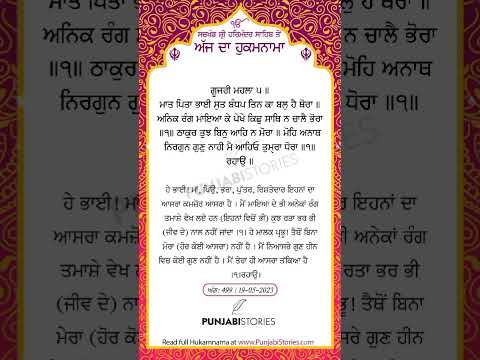 ੴ
ਸਚਖੰਡ ਸ਼੍ਰੀ ਹਰਿਮੰਦਰ ਸਾਹਿਬ ਤੋਂ
ਅੱਜ ਦਾ ਹੁਕਮਨਾਮਾ
ਗੂਜਰੀ ਮਹਲਾ ੫ ॥
ਮਾਤ ਪਿਤਾ ਭਾਈ ਸੁਤ ਬੰਧਪ ਤਿਨ ਕਾ ਬਲੁ ਹੈ ਥੋਰਾ ॥
ਅਨਿਕ ਰੰਗ ਮਾਇਆ ਕੇ ਪੇਖੇ ਕਿਛੁ ਸਾਥਿ ਨ ਚਾਲੈ ਭੋਰਾ
॥੧॥ ਠਾਕੁਰ ਤੁਝ ਬਿਨੁ ਆਹਿ ਨ ਮੋਰਾ ॥ ਮੋਹਿ ਅਨਾਥ
ਨਿਰਗੁਨ ਗੁਣੁ ਨਾਹੀ ਮੈ ਆਹਿਓ ਤੁਮ੍ਹਰਾ ਧੋਰਾ ॥੧॥
ਰਹਾਉ ॥
PUNJABISTORIES
ਹੇ ਭਾਈ! ਮਾਂ, ਪਿਉ, ਭਰਾ, ਪੁੱਤਰ, ਰਿਸ਼ਤੇਦਾਰ ਇਹਨਾਂ ਦਾ
ਆਸਰਾ ਕਮਜ਼ੋਰ ਆਸਰਾ ਹੈ । ਮੈਂ ਮਾਇਆ ਦੇ ਭੀ ਅਨੇਕਾਂ ਰੰਗ
ਤਮਾਸ਼ੇ ਵੇਖ ਲਏ ਹਨ (ਇਹਨਾਂ ਵਿਚੋਂ ਭੀ) ਕੁਝ ਰਤਾ ਭਰ ਭੀ
(ਜੀਵ ਦੇ) ਨਾਲ ਨਹੀਂ ਜਾਂਦਾ ।੧। ਹੇ ਮਾਲਕ ਪ੍ਰਭੂ! ਤੈਥੋਂ ਬਿਨਾ
ਮੇਰਾ (ਹੋਰ ਕੋਈ ਆਸਰਾ) ਨਹੀਂ ਹੈ । ਮੈਂ ਨਿਆਸਰੇ ਗੁਣ ਹੀਨ
ਵਿਚ ਕੋਈ ਗੁਣ ਨਹੀਂ ਹੈ । ਮੈਂ ਤੇਰਾ ਹੀ ਆਸਰਾ ਤੱਕਿਆ ਹੈ
।੧।ਰਹਾਉ।
ਅੰਗ: 499 | 19-05-2023
PUNJABISTORIES
Read full Hukamnama at www.PunjabiStories.com